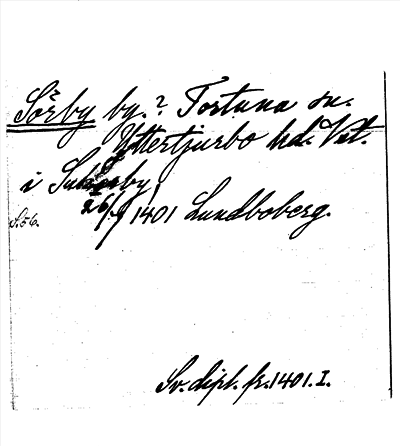 Sörby by.? Tortuna sn.
Yttertjurbo hd. Vstl.
i Suderby!
26/9 1401 Lundboberg.
S. 56.
Sv. dipl. fr. 1401. I.